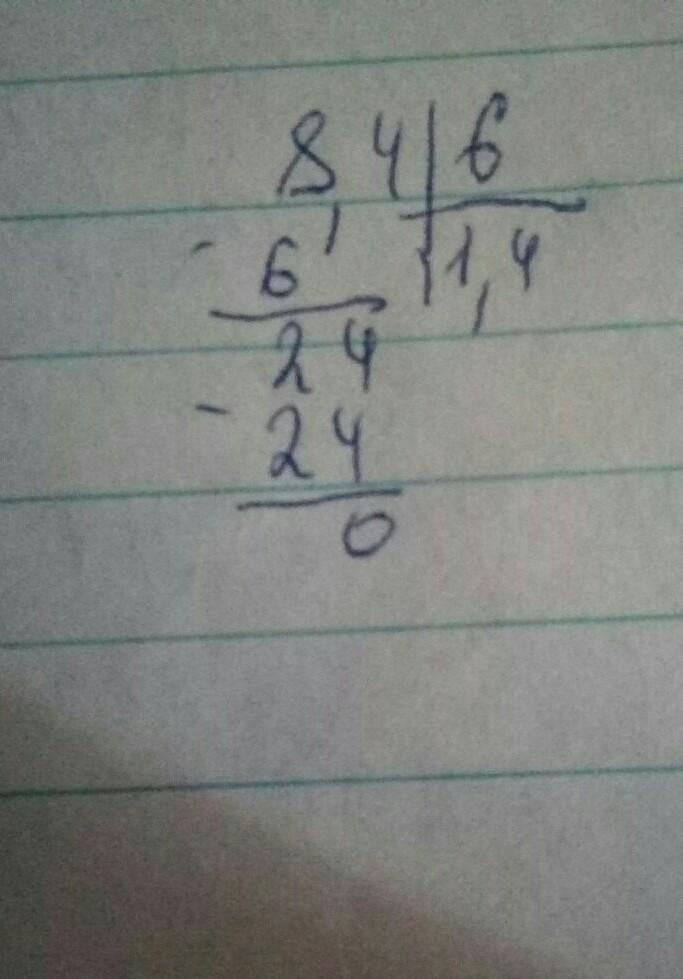 8,4 6
- 6 1,4
24
- 24
0